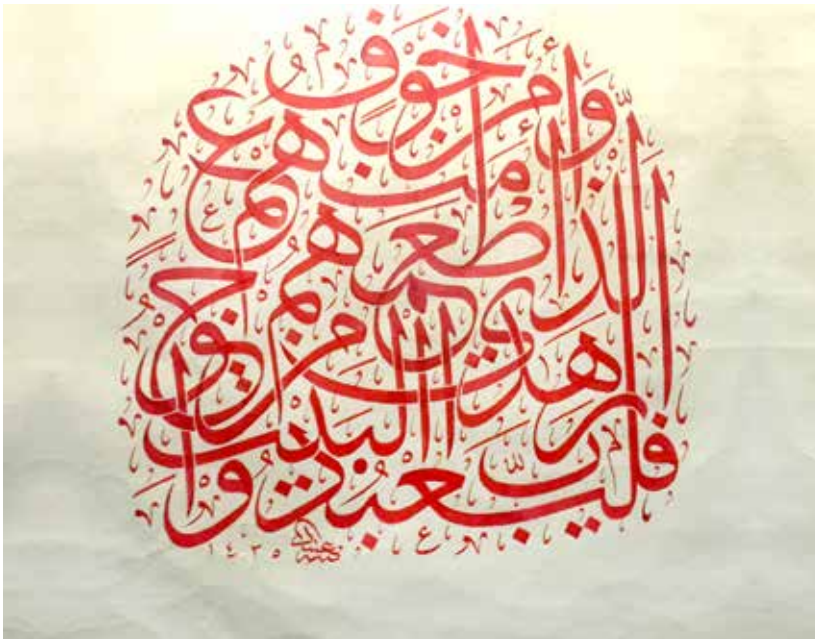 فليعبدوا
رب هذا البيت
الذي أطعمهم من جوع
وآمنهم من خوف
١٤٣٥